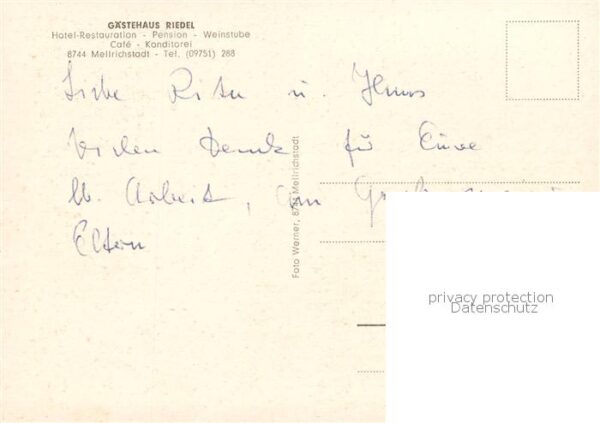 GÄSTEHAUS RIEDEL
Hotel-Restauration - Pension - Weinstube
Café - Konditorei
8744 Mellrichstadt - Tel. (09751) 288
Liebe Rita u. Hans
Vielen Dank für Eure
lb. Arbeit,
Eltern
Foto Werner, 8744 Mellrichstadt
privacy protection
Datenschutz